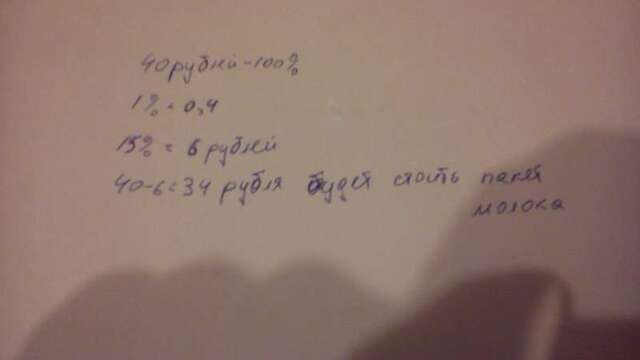 40 рублей - 100%
1% = 0,4
15% = 6 рублей
40-6=34 рубля будет стоить пакет
молока